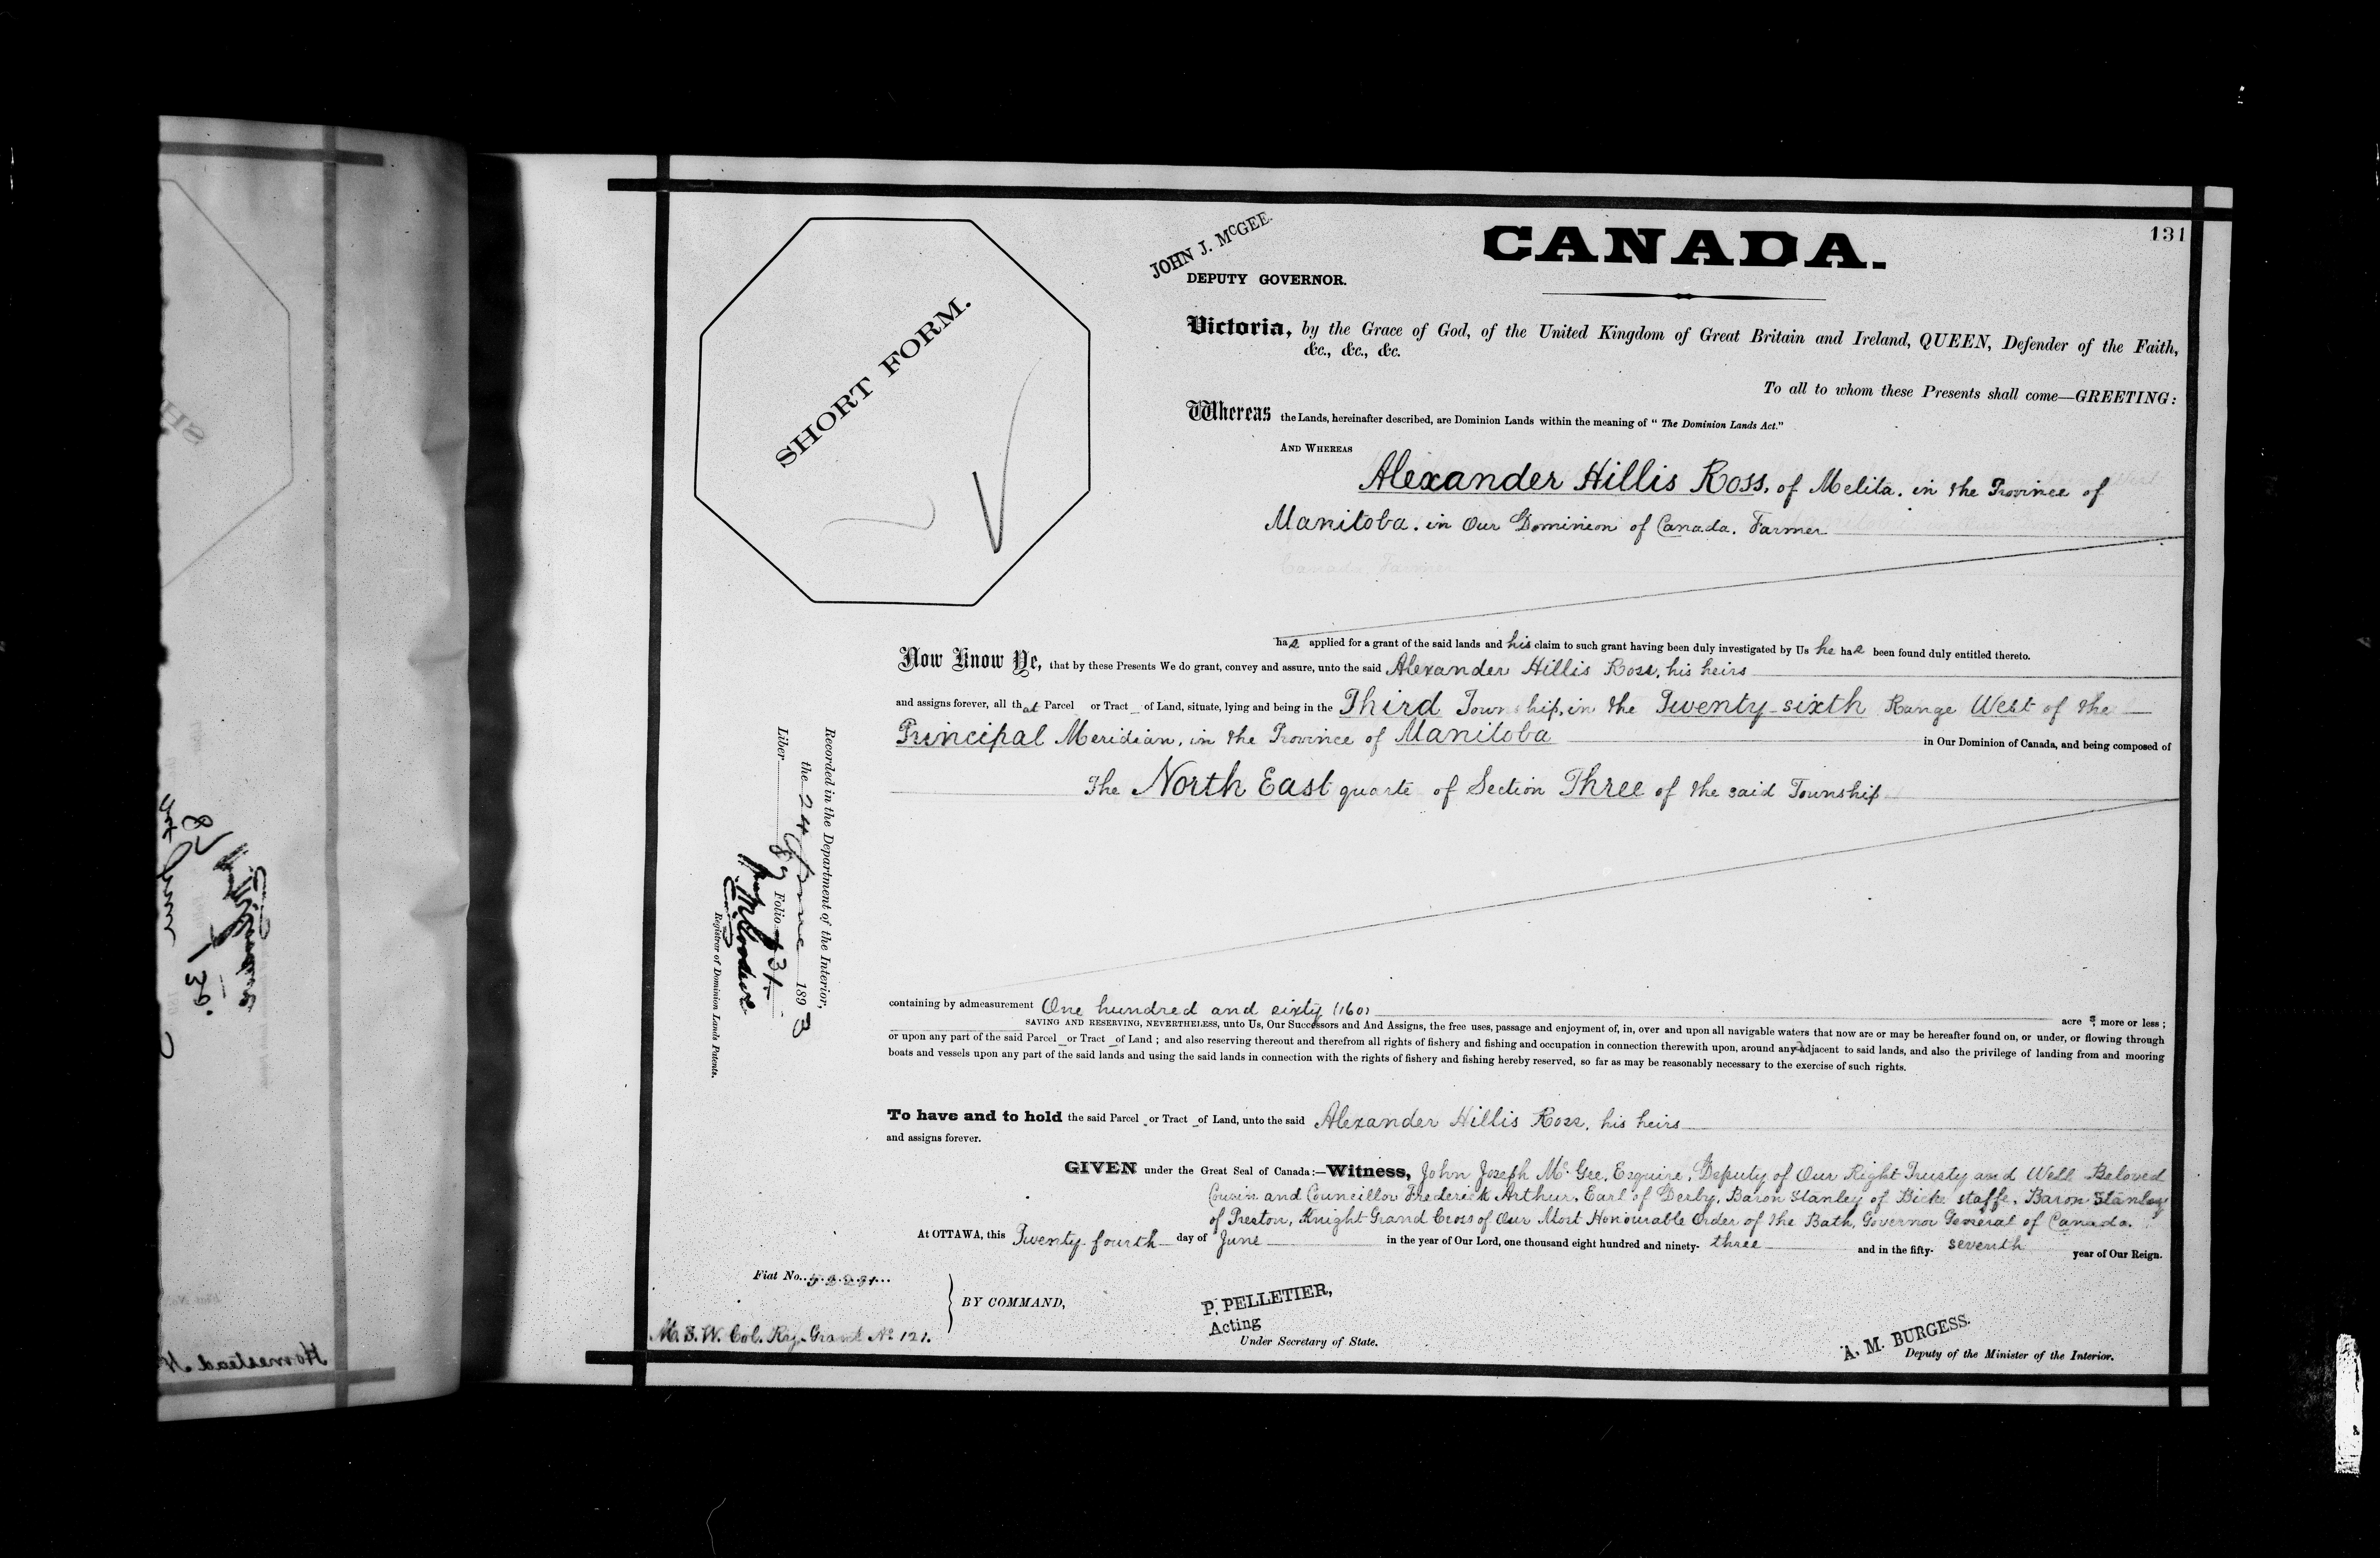 131
CANADA.
JOHN J. McGEE.
DEPUTY GOVERNOR.
SHORT FORM.
Victoria, by the Grace of God, of the United Kingdom of Great Britain and Ireland, QUEEN, Defender of the Faith,
&c., &c., &c.
To all to whom these Presents shall come—GREETING:
Whereas the Lands, hereinafter described, are Dominion Lands within the meaning of "The Dominion Lands Act."
AND WHEREAS
Alexander Hillis Ross, of Melita, in the Province of
Manitoba, in Our Dominion of Canada, Farmer
Canada Farmer
has applied for a grant of the said lands and his claim to such grant having been duly investigated by Us he has been found duly entitled thereto.
Now Know Ye, that by these Presents We do grant, convey and assure, unto the said Alexander Hillis Ross, his heirs
and assigns forever, all that Parcel or Tract of Land, situate, lying and being in the Third Township, in the Twenty-sixth Range West of the
Principal Meridian, in the Province of Manitoba in Our Dominion of Canada, and being composed of
The North East quarte of Section Three of the said Township
Recorded in the Department of the Interior,
the 24 June 1893
Liber 89 Folio 131
Registrar of Dominion Lands Patents.
containing by admeasurement One hundred and sixty (160) acres, more or less;
SAVING AND RESERVING, NEVERTHELESS, unto Us, Our Successors and And Assigns, the free uses, passage and enjoyment of, in, over and upon all navigable waters that now are or may be hereafter found on, or under, or flowing through
or upon any part of the said Parcel or Tract of Land; and also reserving thereout and therefrom all rights of fishery and fishing and occupation in connection therewith upon, around any adjacent to said lands, and also the privilege of landing from and mooring
boats and vessels upon any part of the said lands and using the said lands in connection with the rights of fishery and fishing hereby reserved, so far as may be reasonably necessary to the exercise of such rights.
To have and to hold the said Parcel or Tract of Land, unto the said Alexander Hillis Ross, his heirs
and assigns forever.
GIVEN under the Great Seal of Canada:—Witness, John Joseph McGee, Esquire, Deputy of Our Right Trusty and Well Beloved
Cousin and Councillor Frederick Arthur, Earl of Derby, Baron Stanley of Bickerstaffe, Baron Stanley
of Preston, Knight Grand Cross of Our Most Honourable Order of the Bath, Governor General of Canada.
At OTTAWA, this Twenty-fourth day of June in the year of Our Lord, one thousand eight hundred and ninety-three and in the fifty-seventh year of Our Reign.
Fiat No.
BY COMMAND,
M. S. W. Col. Ry. Grant No 121.
P. PELLETIER,
Acting
Under Secretary of State.
A. M. BURGESS.
Deputy of the Minister of the Interior.
Homestead